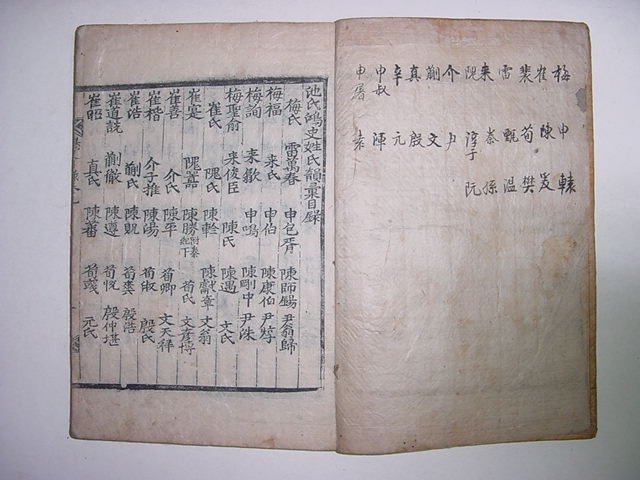 梅 申 轅
崔 陳 爰
裴 荀 樊
雷 甄 溫
来 秦 孫
隗 淳于 阮
介 尹
蒯 文
真 殷
辛 元
申叔 渾
申屠
池氏鴻史姓氏韻彙目錄
梅氏 雷萬春 申包胥 陳師錫 尹翁歸
梅福 来氏 申伯 陳康伯 尹焞
梅詢 来歙 申鳴 陳剛中 尹洙
梅聖俞 来俊臣 陳氏 陳遇 文氏
崔氏 隗氏 陳軫 陳獻章 文翁
崔寔 隗囂 陳勝附秦紀下 荀氏 文彦博
崔善 介氏 陳平 荀卿 文天祥
崔楷 介子推 陳湯 荀淑 殷氏
崔浩 蒯氏 荀爽 殷浩
蒯徹 陳遵 荀悦 殷仲堪
崔昭 真氏 陳蕃 荀彧 元氏